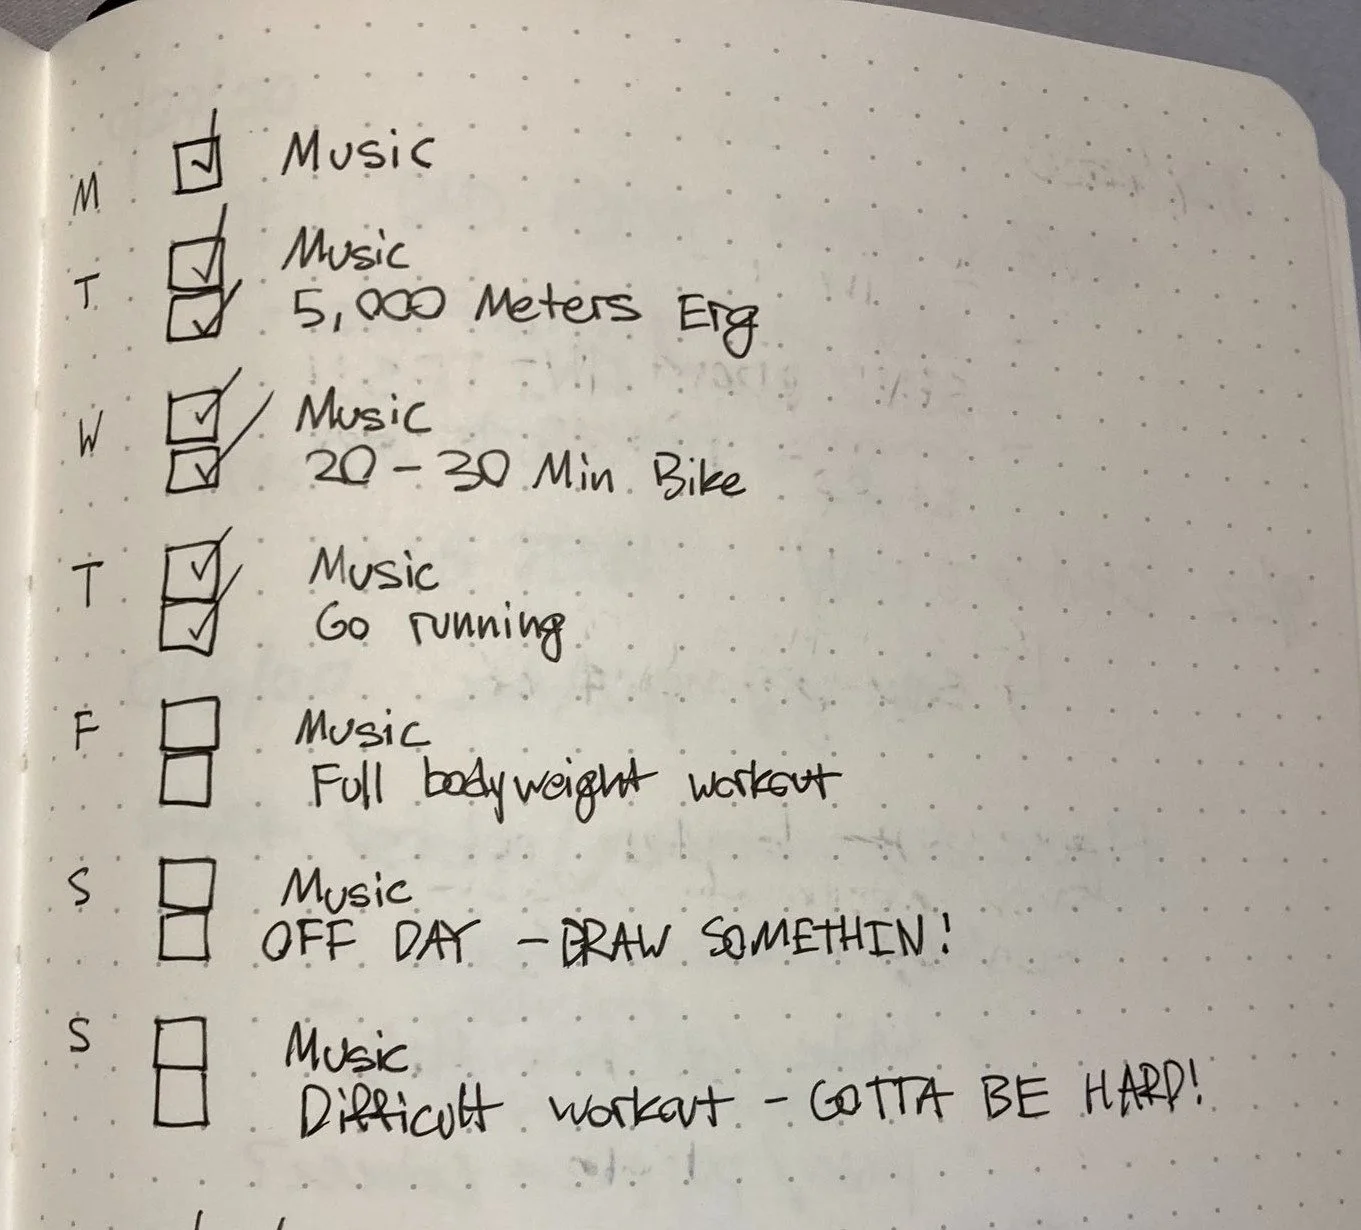 M ☑ Music
T ☑ Music
☑ 5,000 Meters Erg
W ☑ Music
☑ 20 - 30 Min Bike
T ☑ Music
☑ Go running
F ☐ Music
☐ Full bodyweight workout
S ☐ Music
☐ OFF DAY - DRAW SOMETHIN!
S ☐ Music
☐ Difficult workout - GOTTA BE HARD!